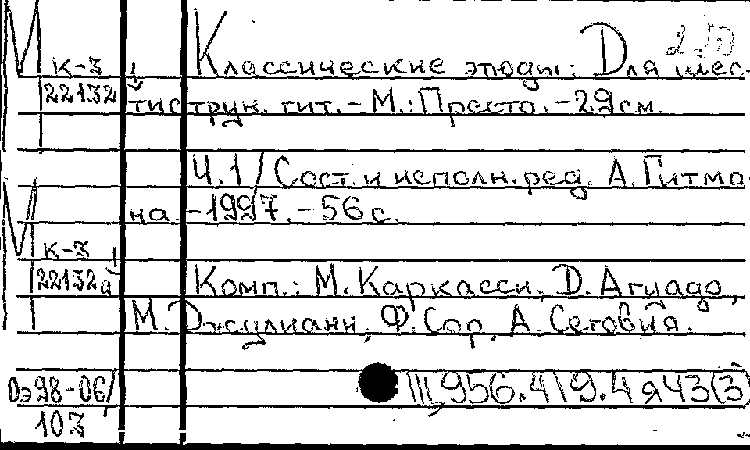 Классические этюды: Для шес-
К-3
22132
тиструн. гит. - М.: Престо. - 29 см.
Ч.1 / Сост. и исполн. ред. А. Гитма-
на. - 1997. - 56 с.
К-3
22132а
Комп.: М. Каркасси, Д. Агуадо,
М. Джулиани, Ф. Сор, А. Сеговия.
Оэ98-06/
103
Щ,956.419.4я43(3)